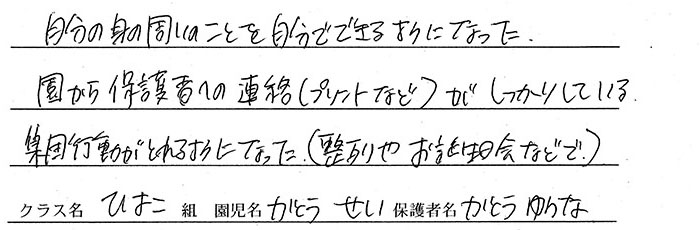 自分の身の周りのことを自分でできるようになった。
園から保護者への連絡(プリントなど)がしっかりしている。
集団行動がとれるようになった。(整列やお誕生日会などで。)
クラス名 ひよこ 組 園児名 かとう せい 保護者名 かとう ゆりな